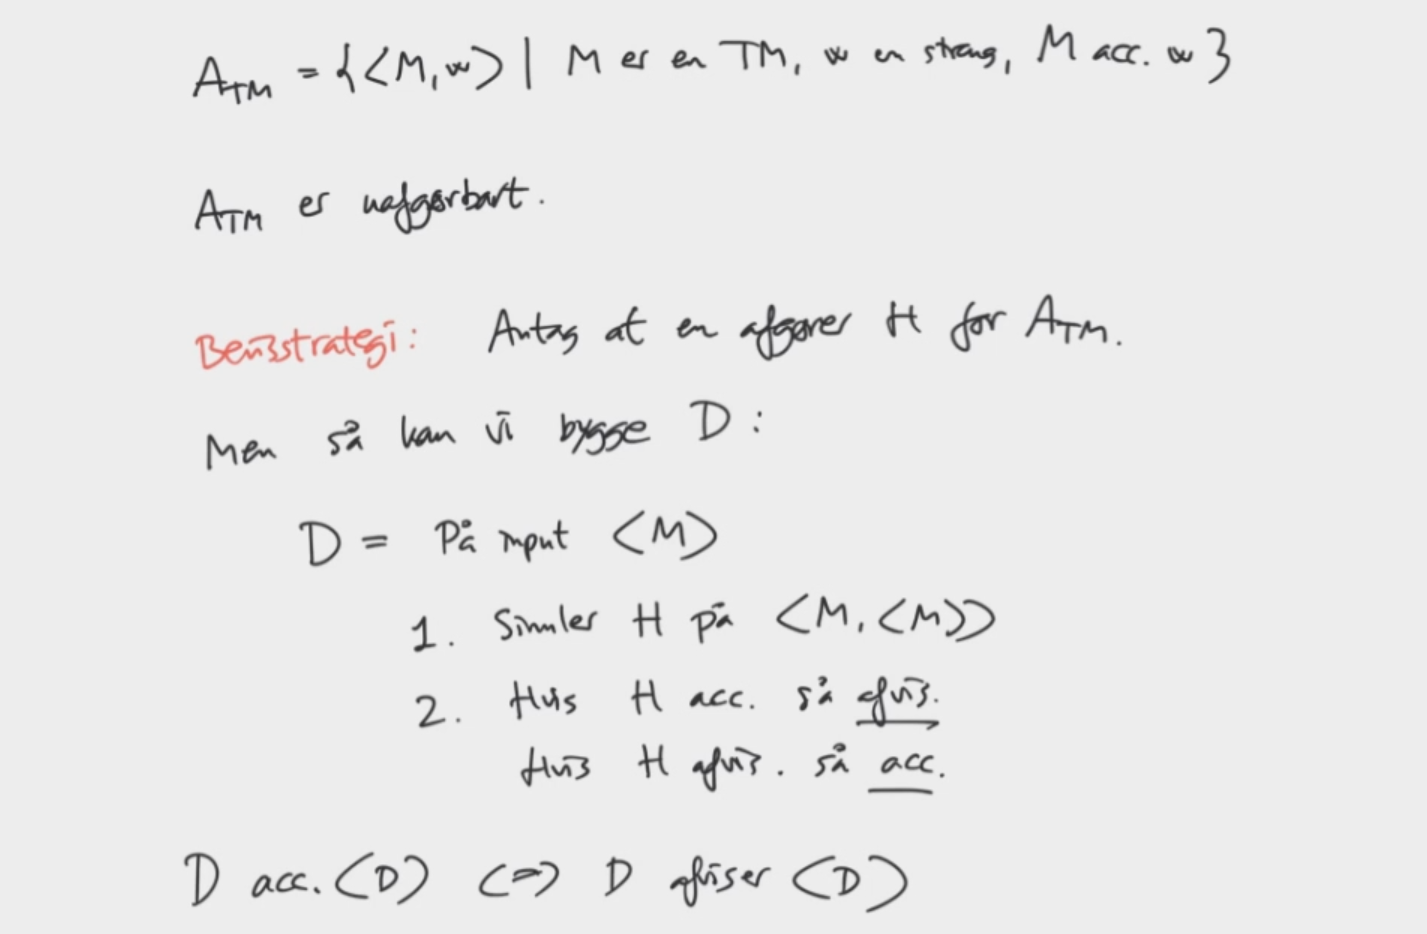 A_TM = {<M,w> | M er en TM, w en streng, M acc. w}
A_TM er uafgørbart.
Bevisstrategi: Antag at en afgører H for A_TM.
Men så kan vi bygge D:
D = På input <M>
1. Simuler H på <M,<M>>
2. Hvis H acc. så afvis.
Hvis H afvis. så acc.
D acc. <D> <=> D afviser <D>